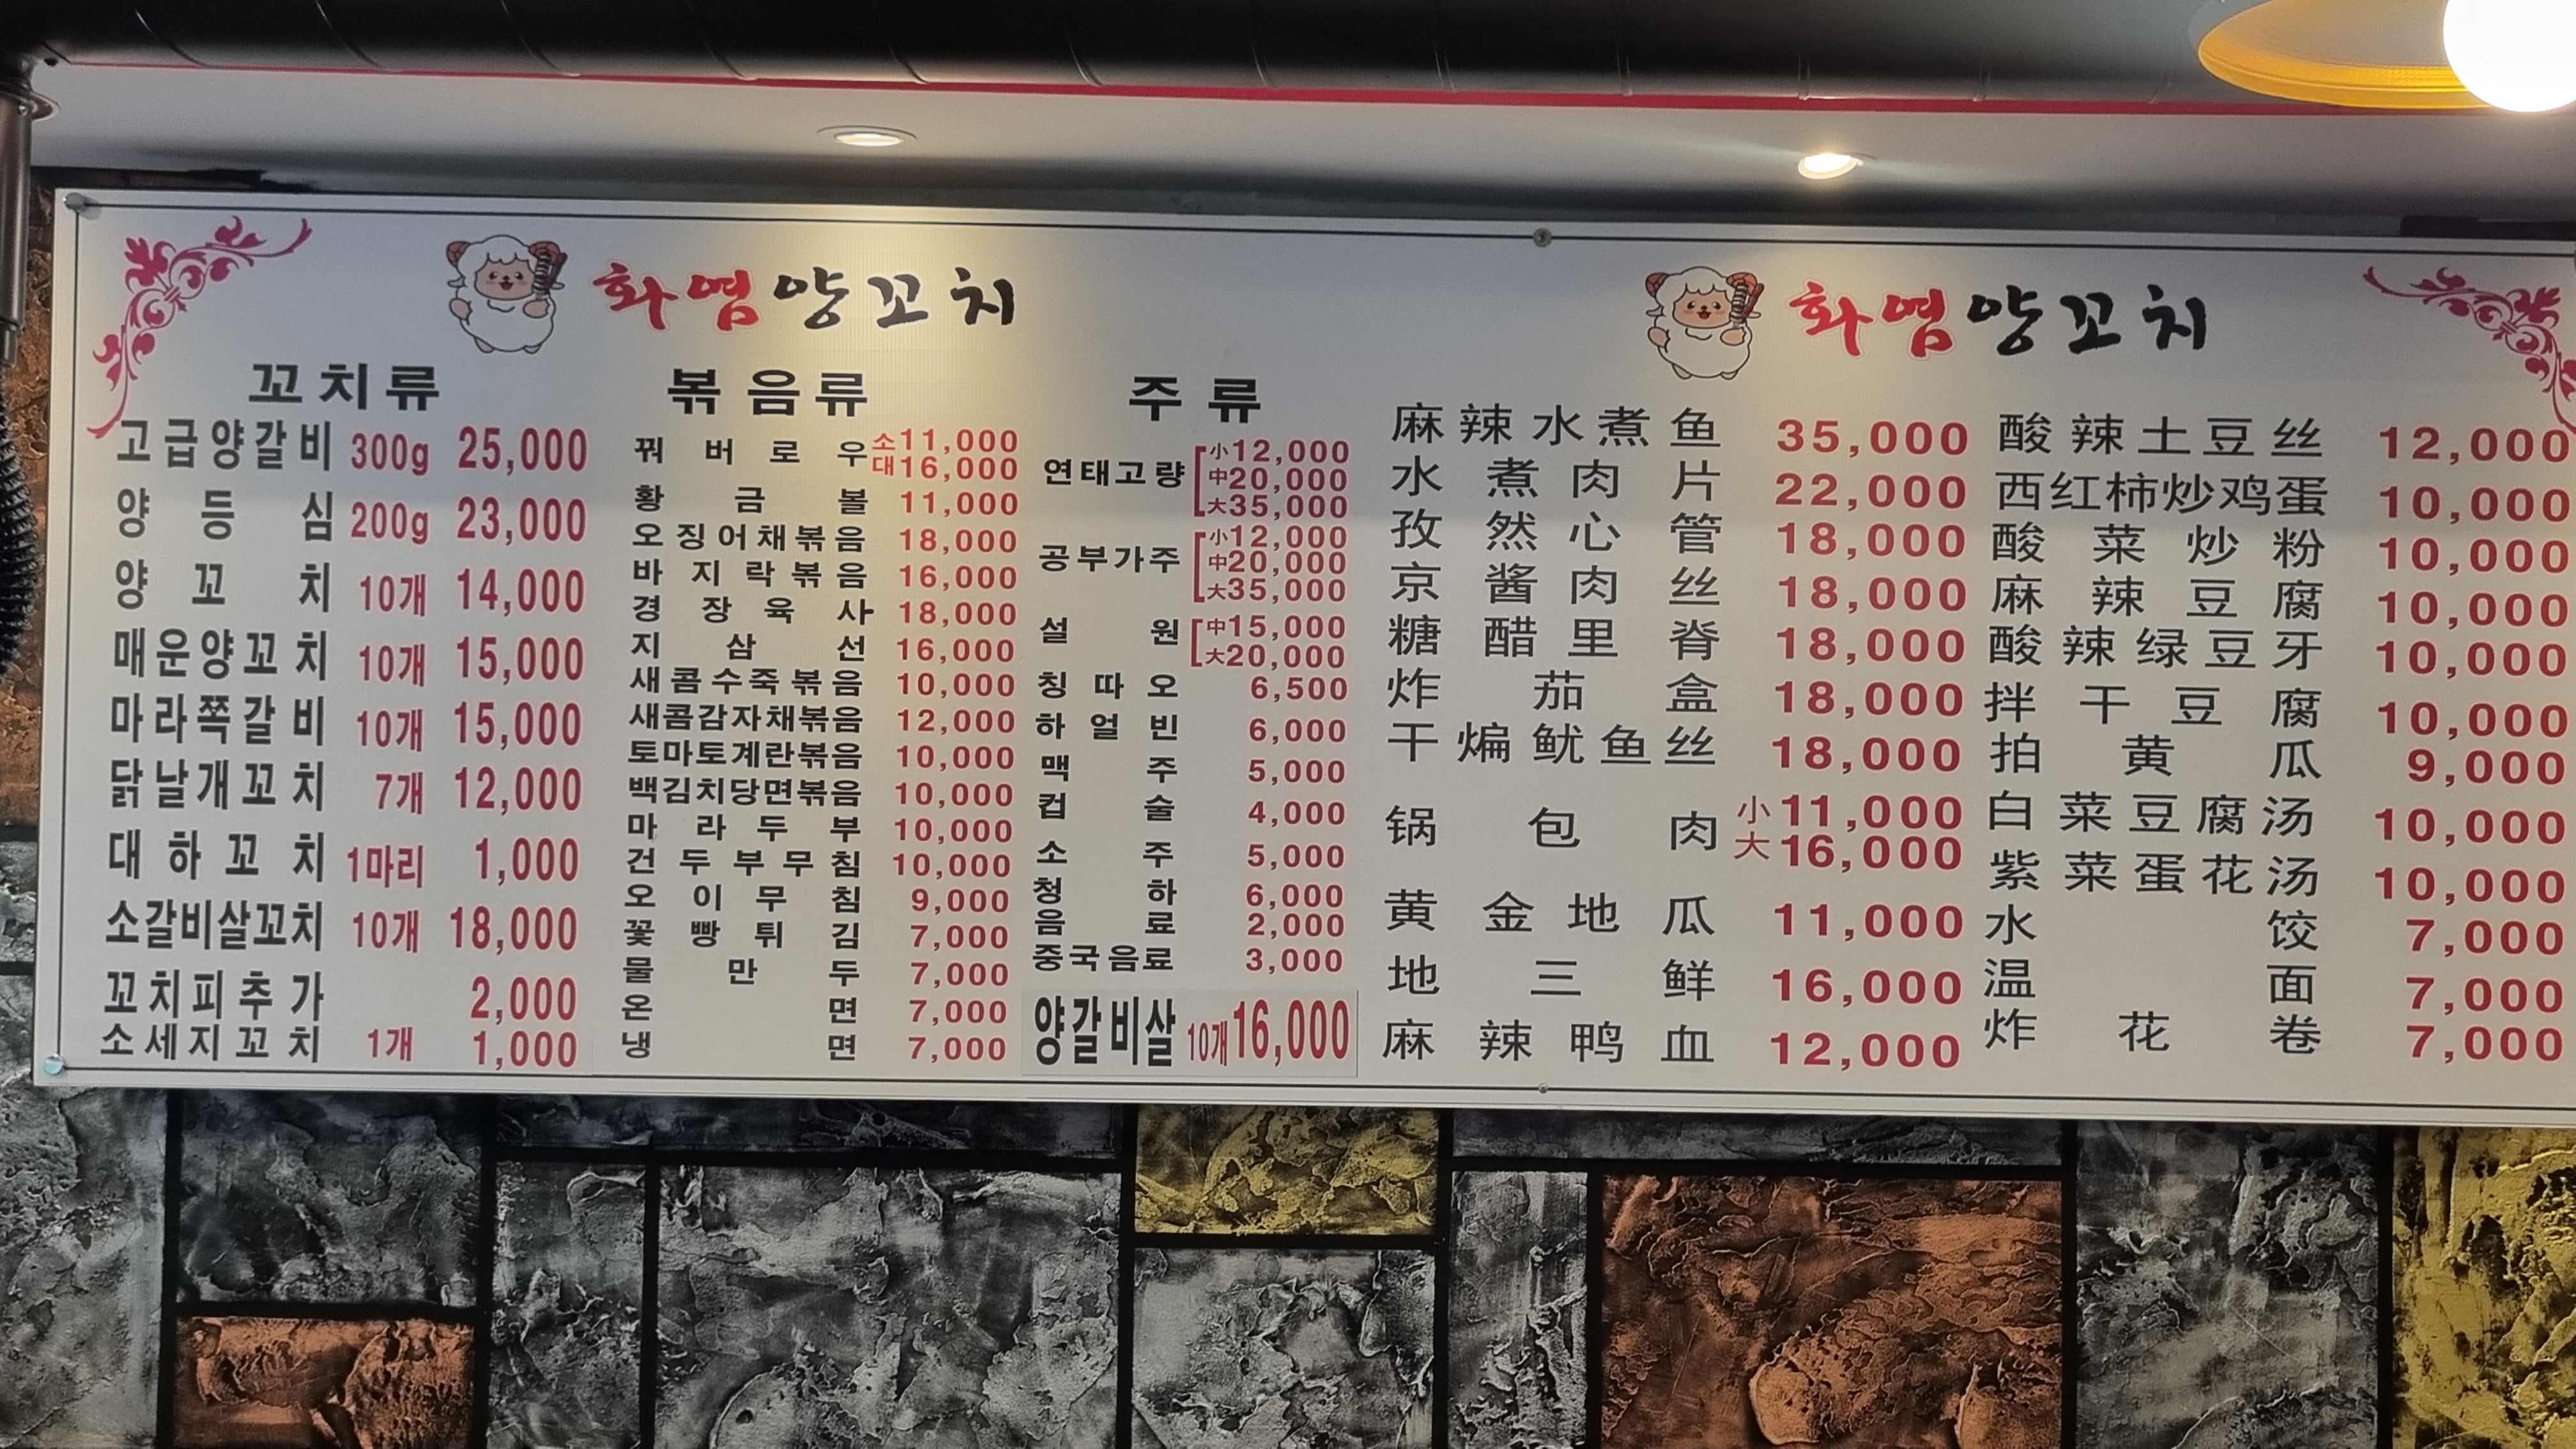 화염양꼬치
꼬치류
고급양갈비 300g 25,000
양등심 200g 23,000
양꼬치 10개 14,000
매운양꼬치 10개 15,000
마라쪽갈비 10개 15,000
닭날개꼬치 7개 12,000
대하꼬치 1마리 1,000
소갈비살꼬치 10개 18,000
꼬치피추가 2,000
소세지꼬치 1개 1,000
볶음류
꿔버로우 소11,000
대16,000
황금볼 11,000
오징어채볶음 18,000
바지락볶음 16,000
경장육사 18,000
지삼선 16,000
새콤수죽볶음 10,000
새콤감자채볶음 12,000
토마토계란볶음 10,000
백김치당면볶음 10,000
마라두부 10,000
건두부무침 10,000
오이무침 9,000
꽃빵튀김 7,000
물만두 7,000
온면 7,000
냉면 7,000
주류
연태고량 小12,000
中20,000
大35,000
공부가주 小12,000
中20,000
大35,000
설원 中15,000
大20,000
칭따오 6,500
하얼빈 6,000
맥주 5,000
컵술 4,000
소주 5,000
청하 6,000
음료 2,000
중국음료 3,000
양갈비살 10개 16,000
화염양꼬치
麻辣水煮鱼 35,000
水煮肉片 22,000
孜然心管 18,000
京酱肉丝 18,000
糖醋里脊 18,000
炸茄盒 18,000
干煸鱿鱼丝 18,000
锅包肉 小11,000
大16,000
黄金地瓜 11,000
地三鲜 16,000
麻辣鸭血 12,000
酸辣土豆丝 12,000
西红柿炒鸡蛋 10,000
酸菜炒粉 10,000
麻辣豆腐 10,000
酸辣绿豆牙 10,000
拌干豆腐 10,000
拍黄瓜 9,000
白菜豆腐汤 10,000
紫菜蛋花汤 10,000
水饺 7,000
温面 7,000
炸花卷 7,000